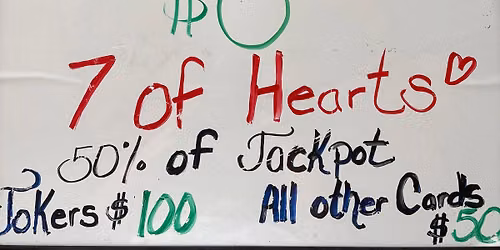 $
7 of Hearts
50% of Jackpot
Jokers $100
All other Cards
$50